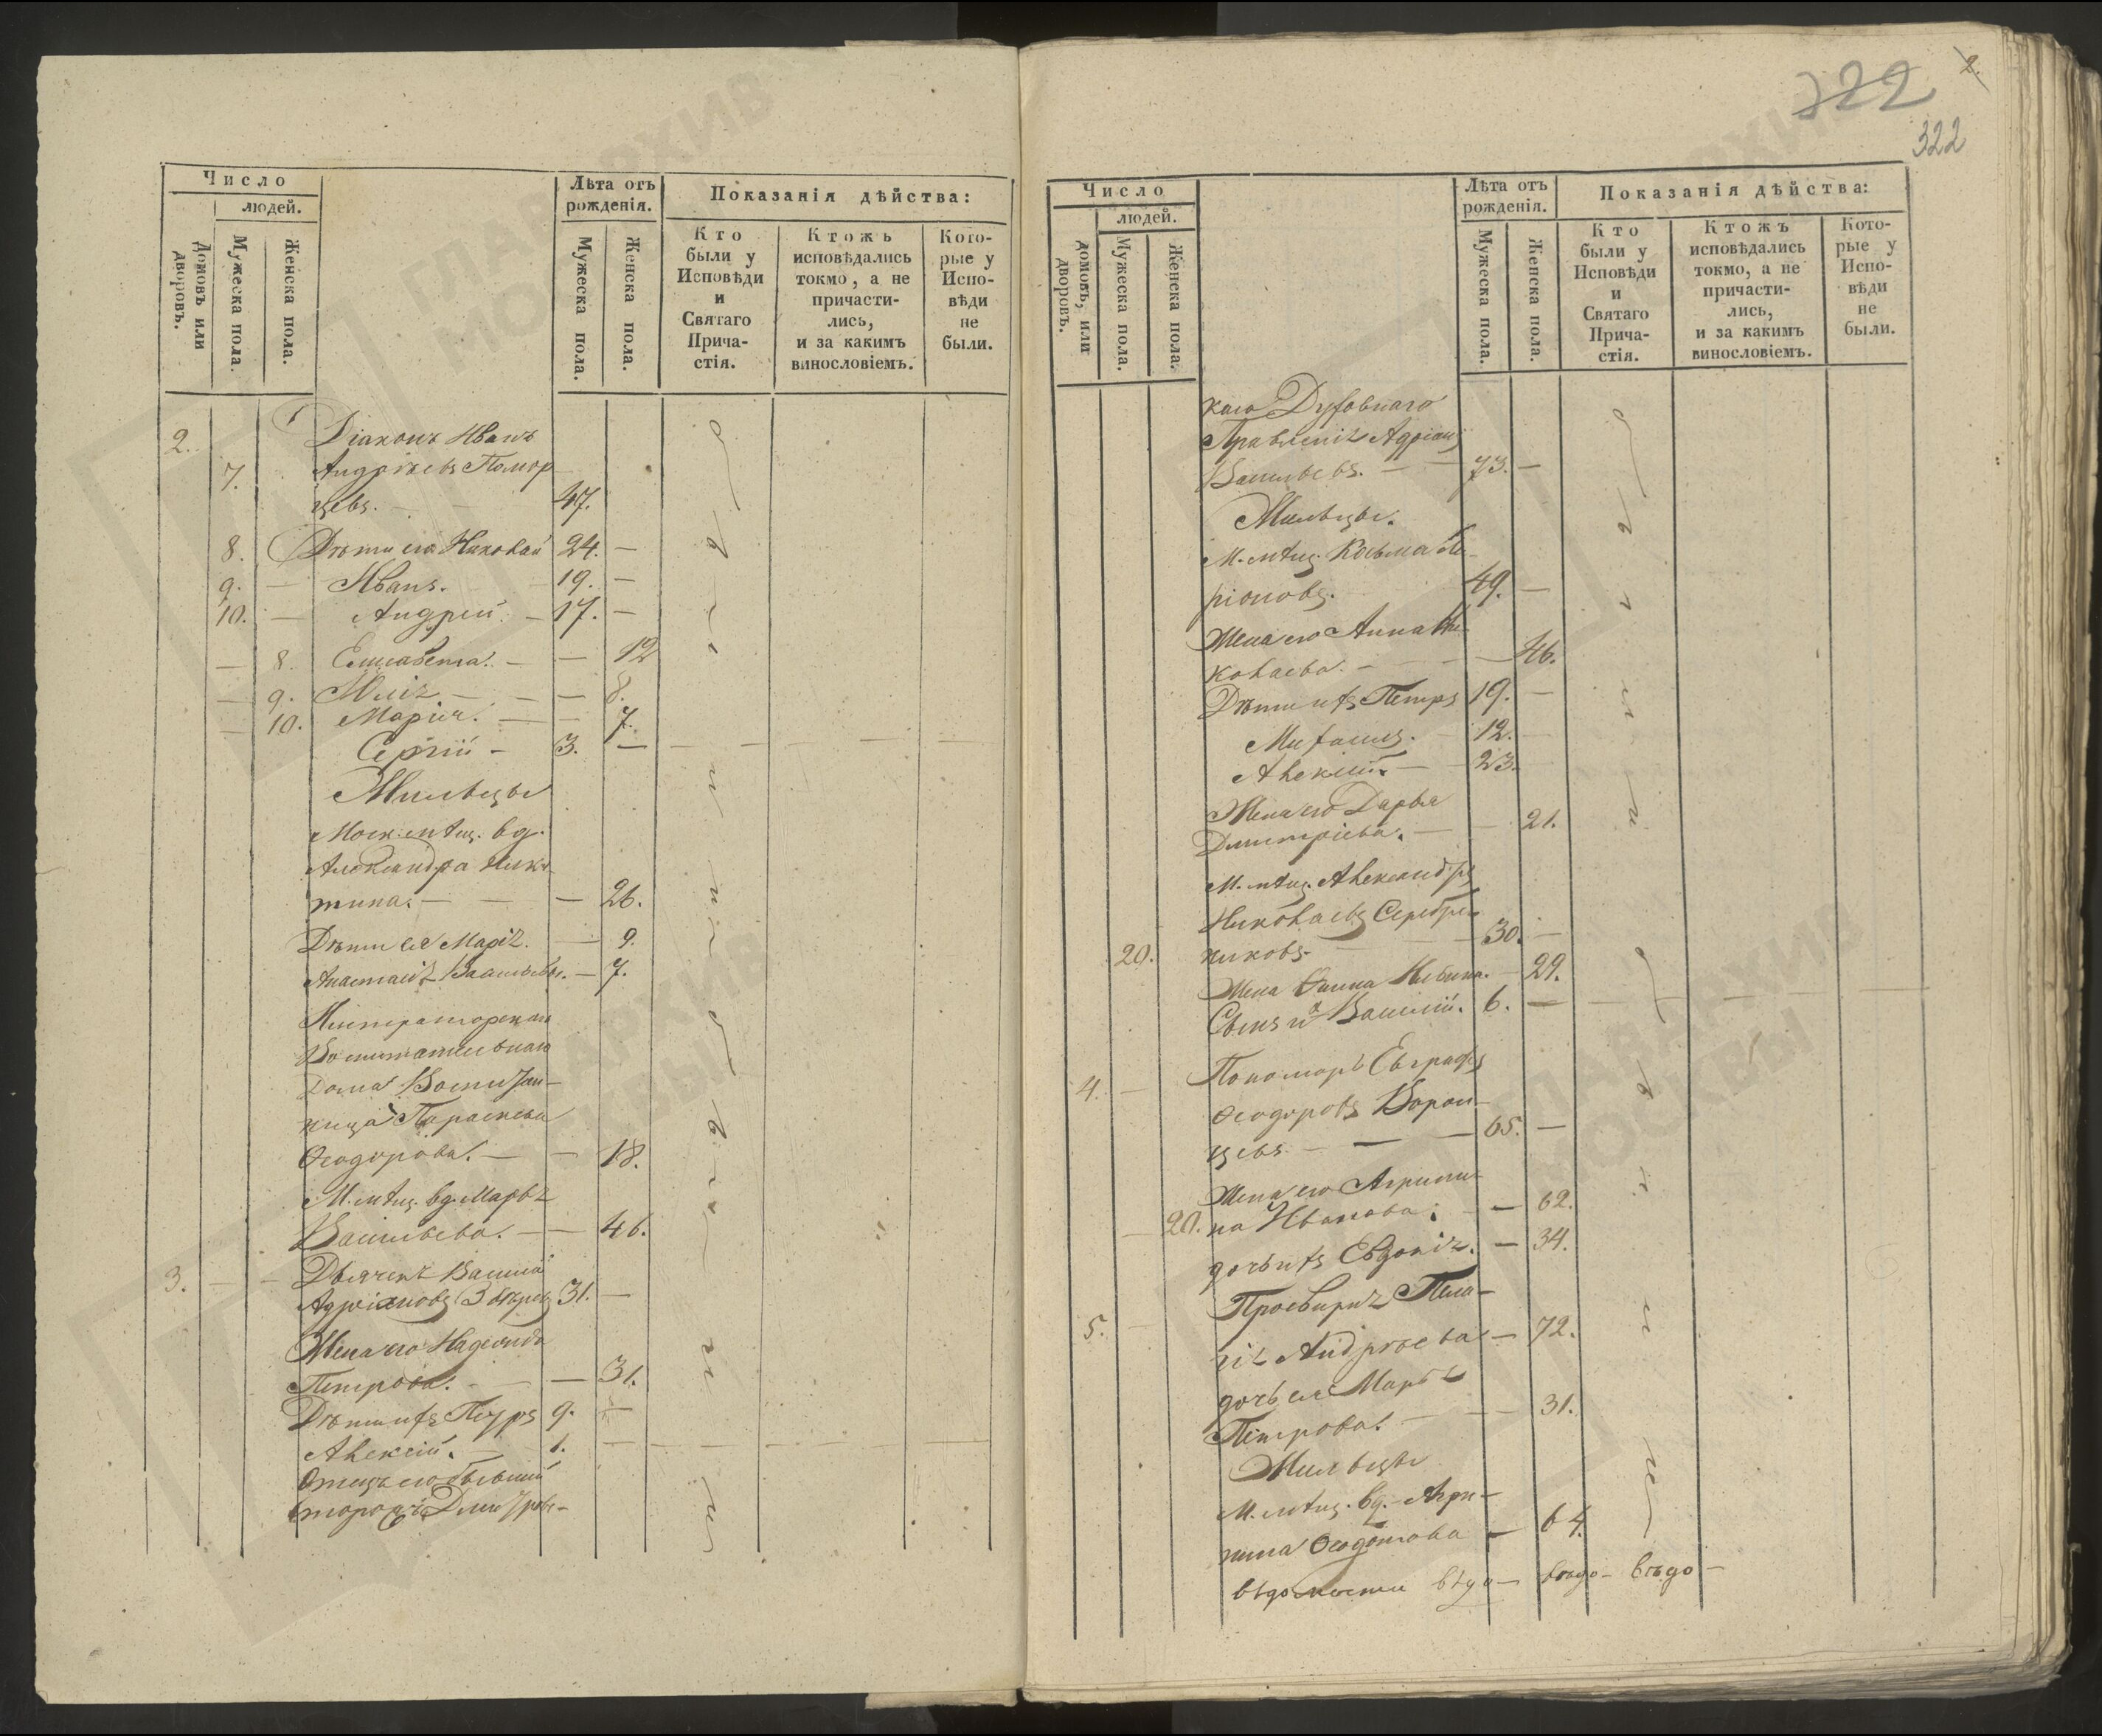 Число
людей.
Домовъ или дворовъ.
Мужеска пола.
Женска пола.
Лѣта отъ рожденія.
Мужеска пола.
Женска пола.
Показанія дѣйства:
Кто были у Исповѣди и Святаго Прича-стія.
Ктожъ исповѣдались токмо, а не причасти-лись, и за какимъ винословіемъ.
Кото-рые у Испо-вѣди не были.
2. Діаконъ Иванъ
7. Андреевъ Помор
цевъ. 47.
8. Дѣти его Николай 24. —
9. — Иванъ. 19. —
10. — Андрей. — 17. —
— 8. Елисавета. — — 12
— 9. Юлія — — — 8.
— 10. Марія. — — 7.
Сергій — 3. —
Жильцы
Моск. мѣщ. вд.
Александра Ники
тина. — — — 26.
Дѣти ея Марія. — 9.
Анастасія Васильевы. — 7.
Императорскаго
Воспитательнаго
Дома Воспитан—
ница Параскева
Ѳеодорова. — — 18.
М. мѣщ. вд. Марья
Васильева. — — 46.
3. — — Дьячекъ Василій
Адріановъ 31. —
Жена его Надежда
Петрова. — — 31.
Дѣти ихъ Петръ 9. —
Алексѣй. — 6. —
Отецъ его бывшій
сторожъ Дмитров—
322
2.
322
Число
людей.
домовъ, или дворовъ.
Мужеска пола.
Женска пола.
Лѣта отъ рожденія.
Мужеска пола.
Женска пола.
Показанія дѣйства:
Кто были у Исповѣди и Святаго Прича-стія.
Ктожъ исповѣдались токмо, а не причасти-лись, и за какимъ винословіемъ.
Кото-рые у Испо-вѣди не были.
каго Духовнаго
Правленія Адріанъ
Васильевъ. — — 73. —
Жильцы.
М. мѣщ. Косьма
ріоновъ. 49. —
Жена его Анна Ни
колаева. — — — 46.
Дѣти ихъ Петръ 19. —
Михаилъ. 12. —
Алексѣй. — 23. —
Жена его Дарья
Дмитріева. — — 21.
М. мѣщ. Александръ
Николаевъ Серебрен
20. никовъ. — 30. —
Жена Ѳаина Ильина. — 29.
Сынъ ихъ Василій. 6. —
4. — Пономарь Евграфъ
Ѳеодоровъ Ворон—
цевъ — — — 65. —
Жена его Агрипи
— 20. на Иванова. — — 62.
дочь ихъ Евдокія. — 34.
5. — Просвирня Пела—
гія Андреева — 72.
дочь ея Марья
Петрова. — — — 31.
Жильцы
М. мѣщ. вд. Агри—
пина Ѳедотова — 64.
вѣдомости вѣдо— вѣдо— вѣдо—